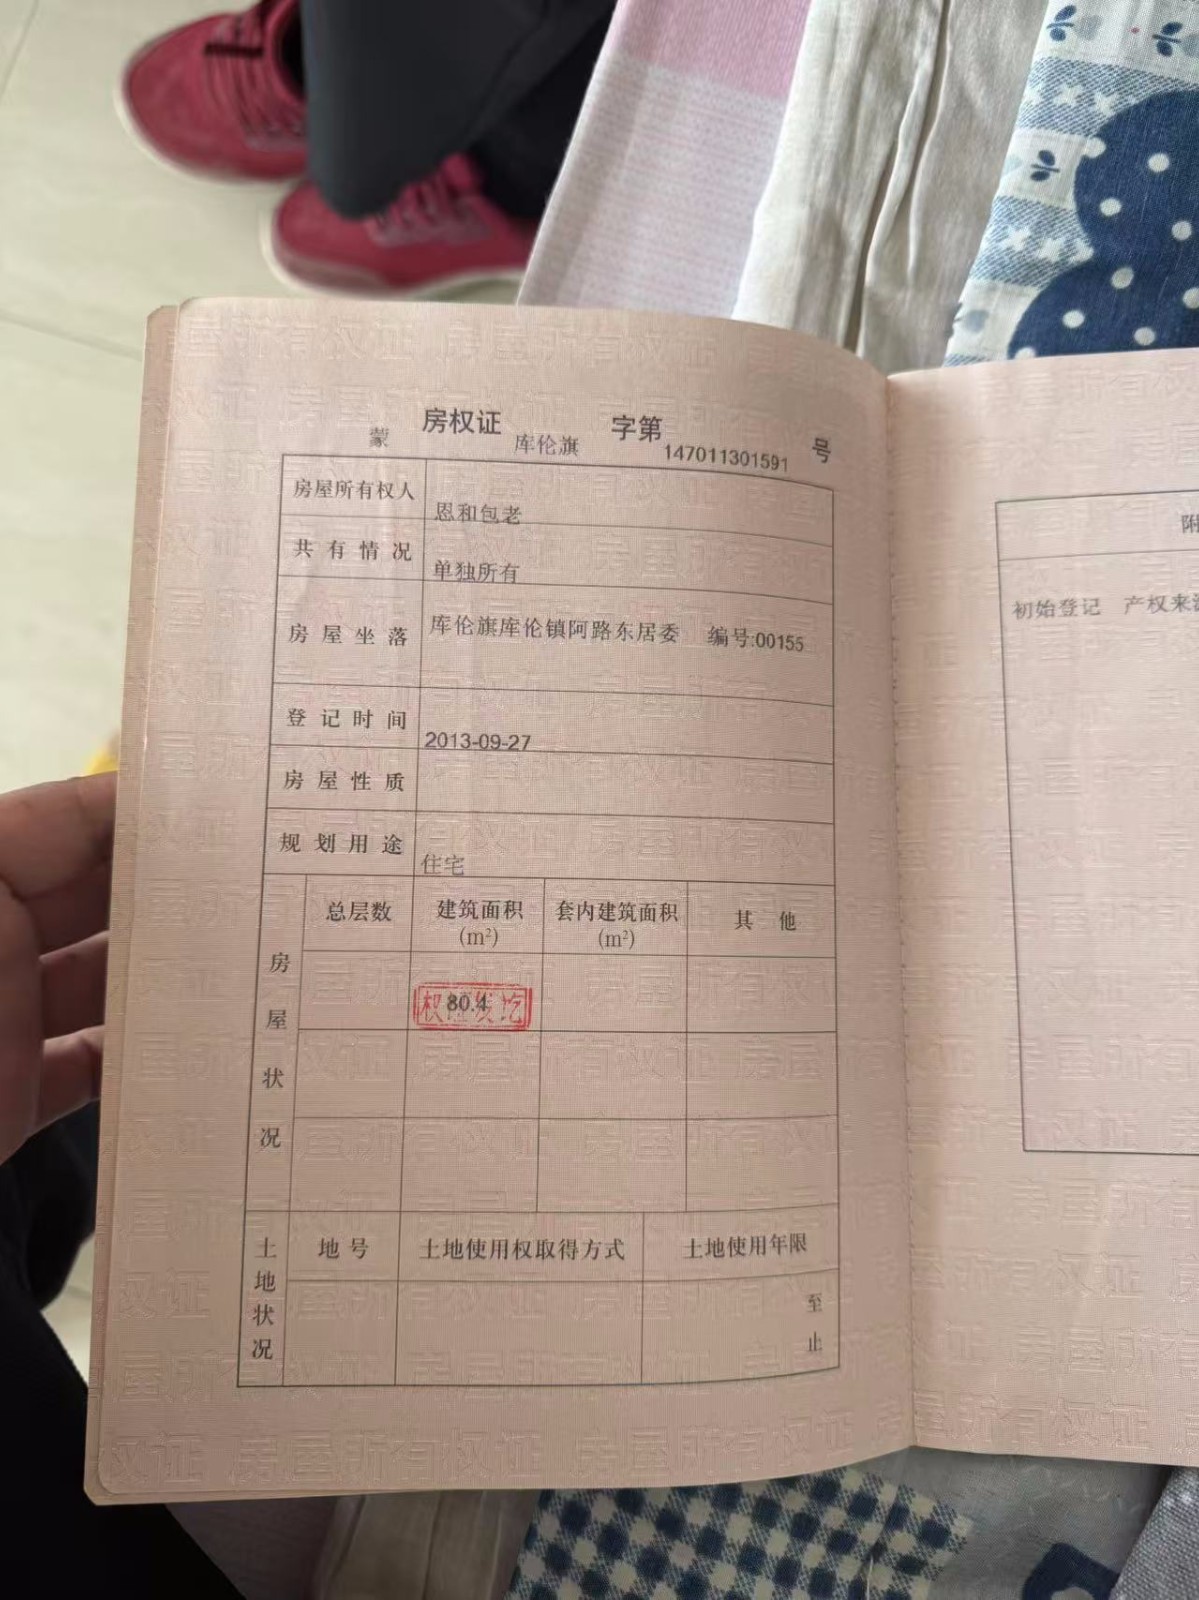 蒙 房权证 库伦旗 字第 147011301591 号
房屋所有权人 恩和包老
共有情况 单独所有
房屋坐落 库伦旗库伦镇阿路东居委 编号:00155
登记时间 2013-09-27
房屋性质
规划用途 住宅
房屋状况
总层数 建筑面积(m²) 套内建筑面积(m²) 其他
80.4
土地状况
地号 土地使用权取得方式 土地使用年限
至
止
附
初始登记 产权来源